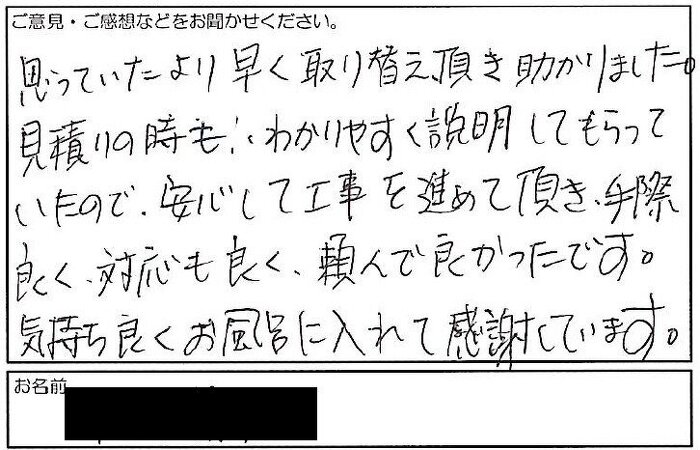 ご意見・ご感想などをお聞かせください。
思っていたより早く取り替え頂き助かりました。
見積りの時も、わかりやすく説明してもらって
いたので、安心して工事を進めて頂き、手際
良く、対応も良く、頼んで良かったです。
気持ち良くお風呂に入れて感謝しています。
お名前